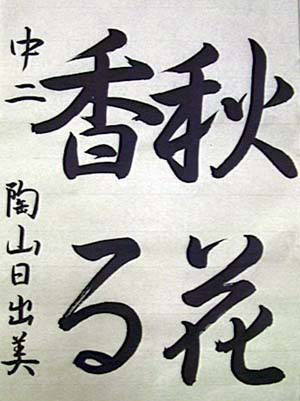 秋花
香る
中二 陶山日出美